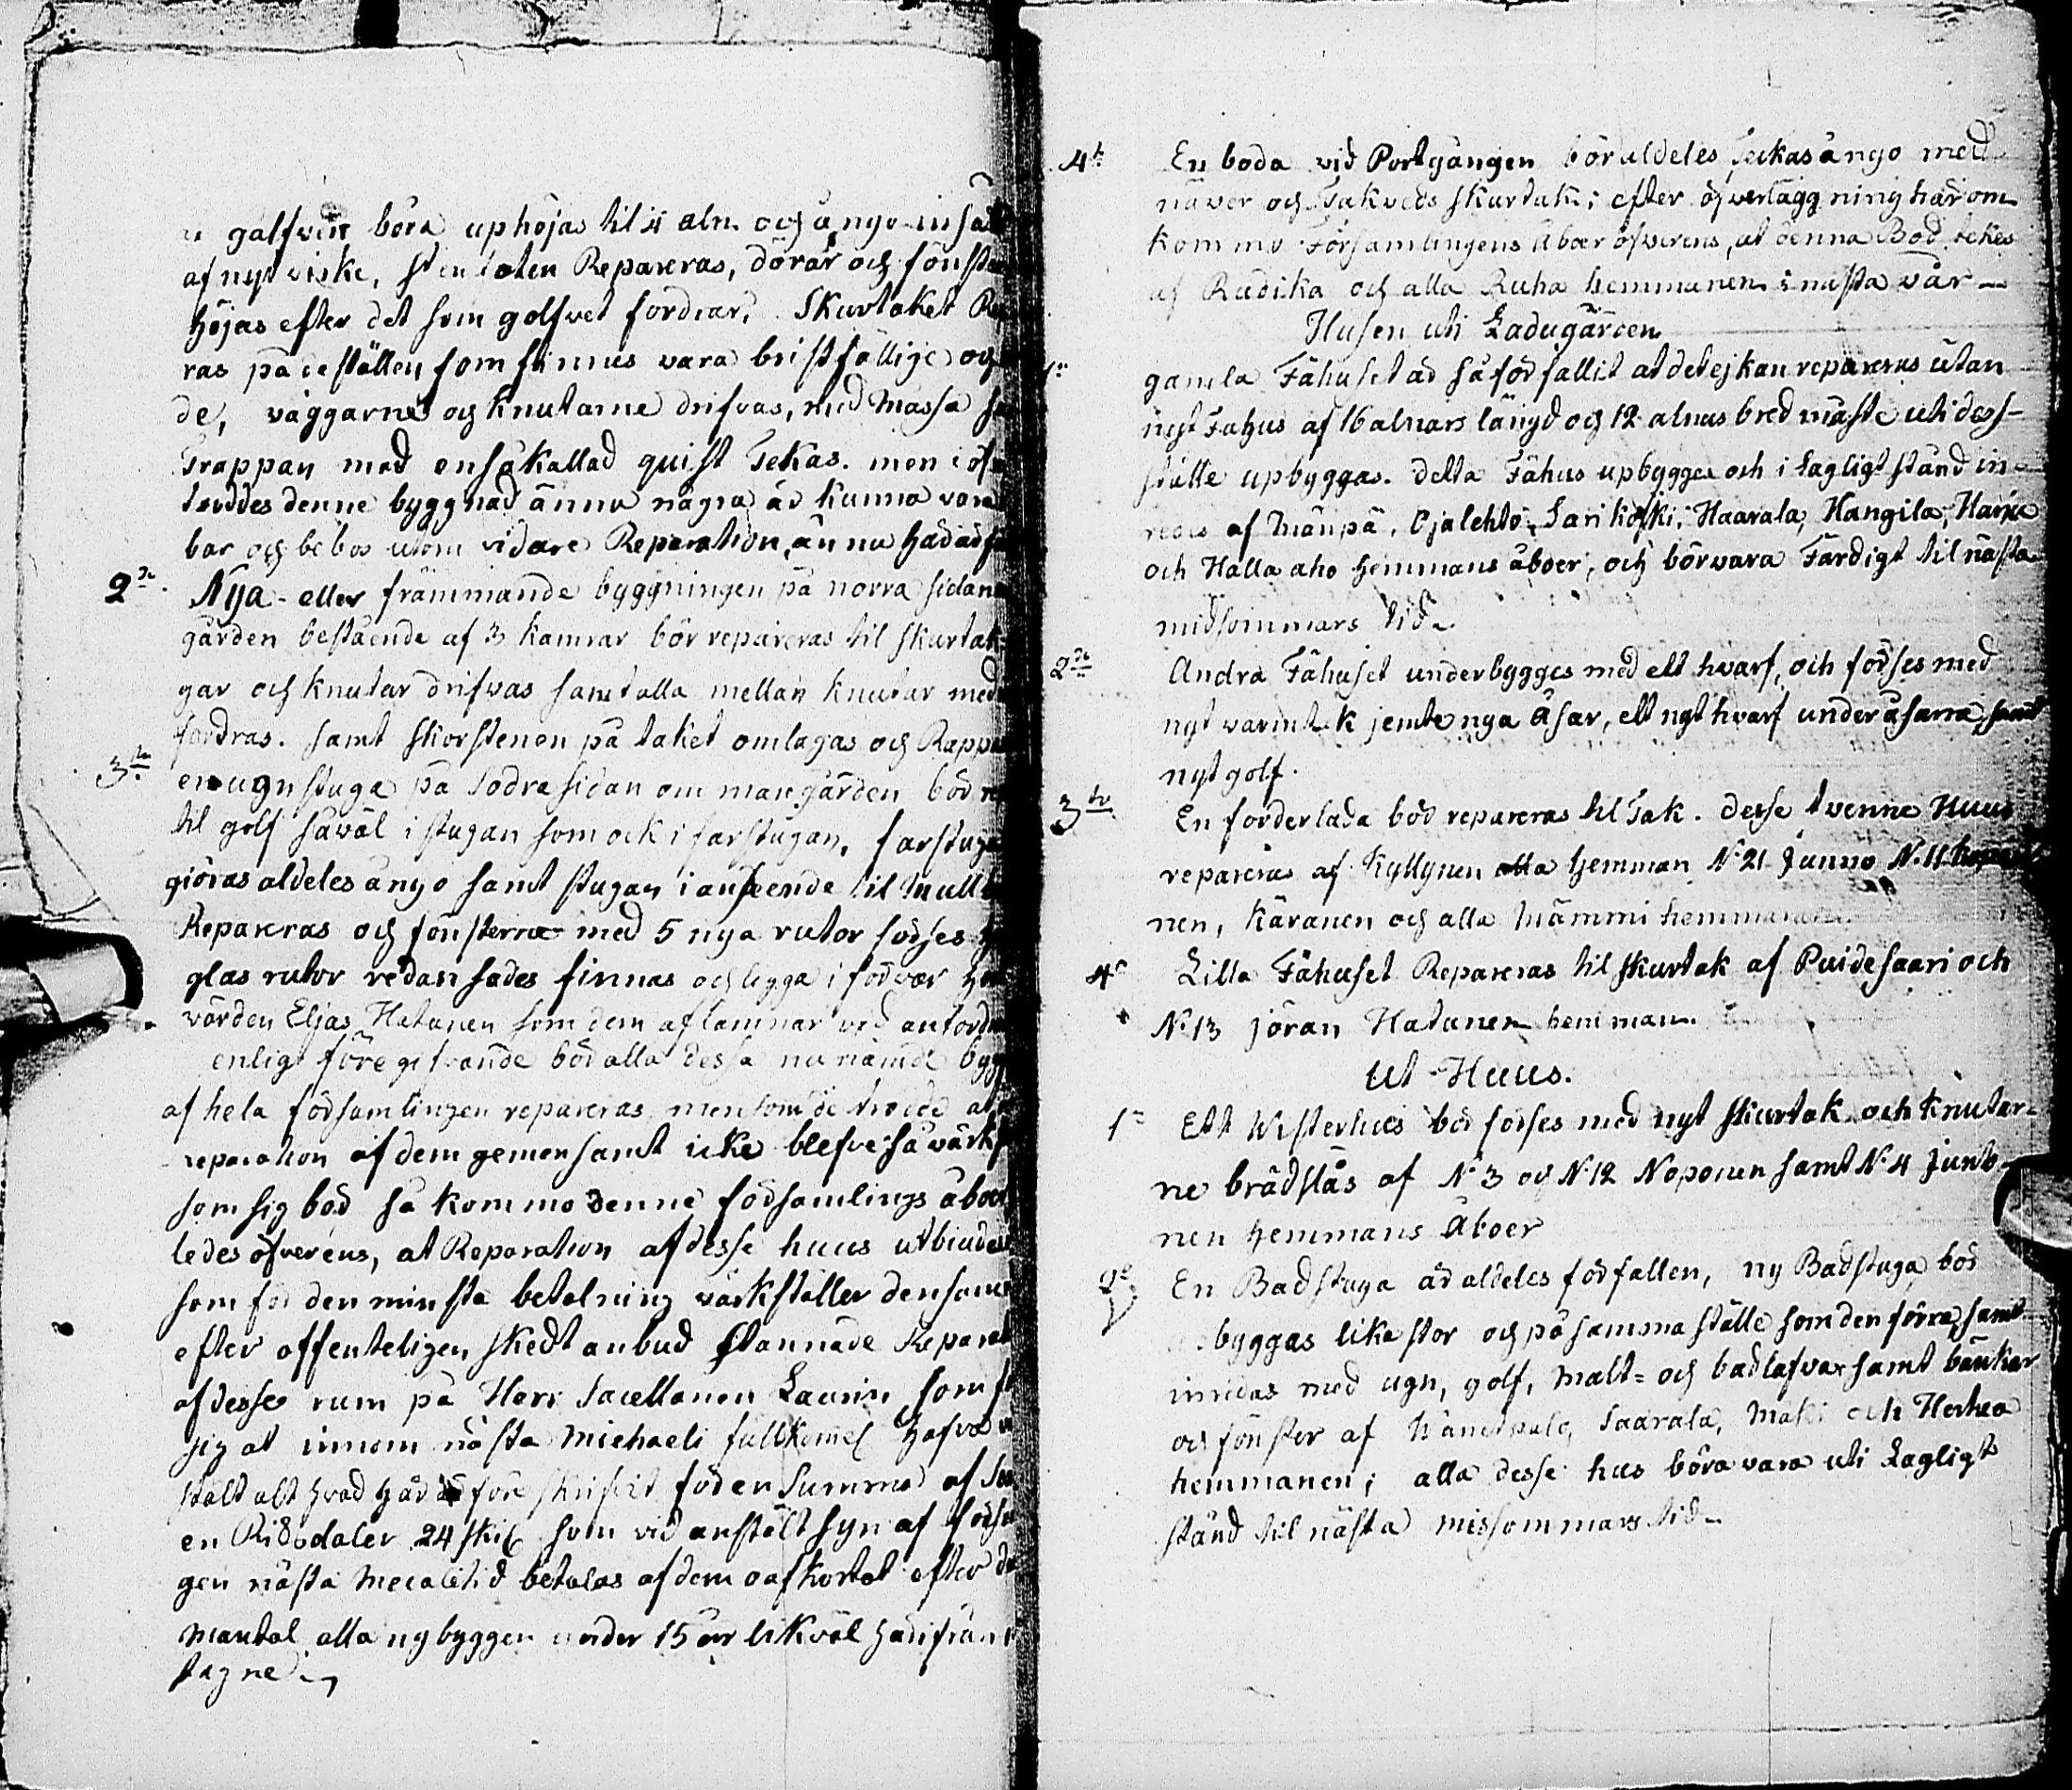 golfven böra uphöjas til 4 aln. och å nyo insät
af nyt virke, stenfoten Repareras, dörar och fönster
höjas efter det som golfvet fordrar, Skurtaket Re
ras på de ställen som finnas vara bristfällige och
de, väggarne och knutarne drifvas, med måssa
Trappan med en så kallad quist Tekas. men i öf
troddes denne byggnad ännu några år kunna vara
bar och bebos utom vidare Reparation, än nu
2:o Nya- eller främmande byggningen på norra sidan
gården bestående af 3 kamrar bör repareras til skurtak
gar och knutar drifvas samt alla mellan knutar med
fordras. samt skorstenen på taket omlagas och Rappa
3:tio en ugnstuga på södra sidan om mangården bör re
til golf såväl i stugan som ock i farstugan, farstuga
giöras aldeles å nyo samt stugan i anseende til mull
Repareras och fönsterna med 5 nya rutor förses
glas rutor redan sades finnas och ligga i förvar hos
värden Eljas Hatunen som dem aflämnar vid anfordr
enligt föregifvande bör alla dessa nu nämde bygg
af hela församlingen repareras men som de trodde att
reparation af dem gemensamt icke blefve så värks
som sig bör så kommo denne församlings åboer
ledes öfverens, at Reparation af desse huus utbiudes
som för den minsta betalning värkställer den samma
efter offenteligen skedt anbud stannade Reparat
af desse rum på Herr Sacellanen Laurin, som
sig at innom nästa Michaeli fullkomel hafva
stält alt hvad här före skrifvit för en Summa af
en Riksdaler 24 skil som vid anstält syn af förs
gen nästa Mecaeli tid betalas af dem oafkortat efter
mantal alla nybyggen under 15 år likväl härifrån
tagne.
4:to En boda vid Portgången bör aldeles Täckas å nyo med
näver och Takveds skurtak; efter öfverläggning härom
kommo Församlingens Åboer öfverens, at denna Bod tekes
af Rudika och alla Ruha hemmanen i nästa vår
Husen uti Ladugården
1:o gamla Fähuset är så förfallit at det ej kan repareras utan
nyt Fähus af 16 alnars längd och 12 alnars bred måste uti dess
ställe upbyggas. detta Fähus upbygges och i Lagligt stånd in
redes af Mänpä, Ojalehto, Sarikoski, Haarala, Kangila, Harju
och Halla aho hemmans åboer, och bör vara Färdigt til nästa
midsommars tid
2:do Andra Fähuset underbygges med ett hvarf, och förses med
nyt varmtak jemte nya åsar, ett nyt hvarf under åsarna, samt
nyt golf.
3:tio En foderlada bör repareras til Tak. desse tvenne Huus
repareras af Kyllynen alla hemman N:o 21 Junno N:o 11
nen, Käranen och alla Mämmi hemmanen
4:o Lilla Fähuset Repareras til skurtak af Puidesaari och
N:o 13 jöran Hatunen hemman.
Ut-Huus.
1:o Ett Visterhus bör förses med nyt skurtak och knutar-
ne brädslås af N:o 3 och N:o 12 Noponen samt N:o 4 junto-
nen hemmans Åboer
2:o En Badstuga är aldeles förfallen, ny Badstuga bör
byggas lika stor och på samma ställe som den förra, samt
inredas med ugn, golf, malt- och badlafvar samt bänkar
och fönster af Saarala, Mäki och Herhea
hemmanen; alla desse hus böra vara uti Lagligt
stånd til nästa missommars tid